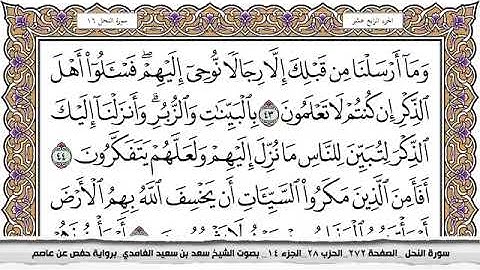 الجزء الرابع عشر
سورة النحل ١٦
وَمَآ أَرۡسَلۡنَا مِن قَبۡلِكَ إِلَّا رِجَالٗا نُّوحِيٓ إِلَيۡهِمۡۖ فَسۡـَٔلُوٓاْ أَهۡلَ
ٱلذِّكۡرِ إِن كُنتُمۡ لَا تَعۡلَمُونَ ٤٣ بِٱلۡبَيِّنَٰتِ وَٱلزُّبُرِۗ وَأَنزَلۡنَآ إِلَيۡكَ
ٱلذِّكۡرَ لِتُبَيِّنَ لِلنَّاسِ مَا نُزِّلَ إِلَيۡهِمۡ وَلَعَلَّهُمۡ يَتَفَكَّرُونَ ٤٤
أَفَأَمِنَ ٱلَّذِينَ مَكَرُواْ ٱلسَّيِّـَٔاتِ أَن يَخۡسِفَ ٱللَّهُ بِهِمُ ٱلۡأَرۡضَ
سورة النحل _ الصفحة ٢٧٢_ الحزب ٢٨ _ الجزء ١٤ _ بصوت الشيخ سعد بن سعيد الغامدي_ برواية حفص عن عاصم